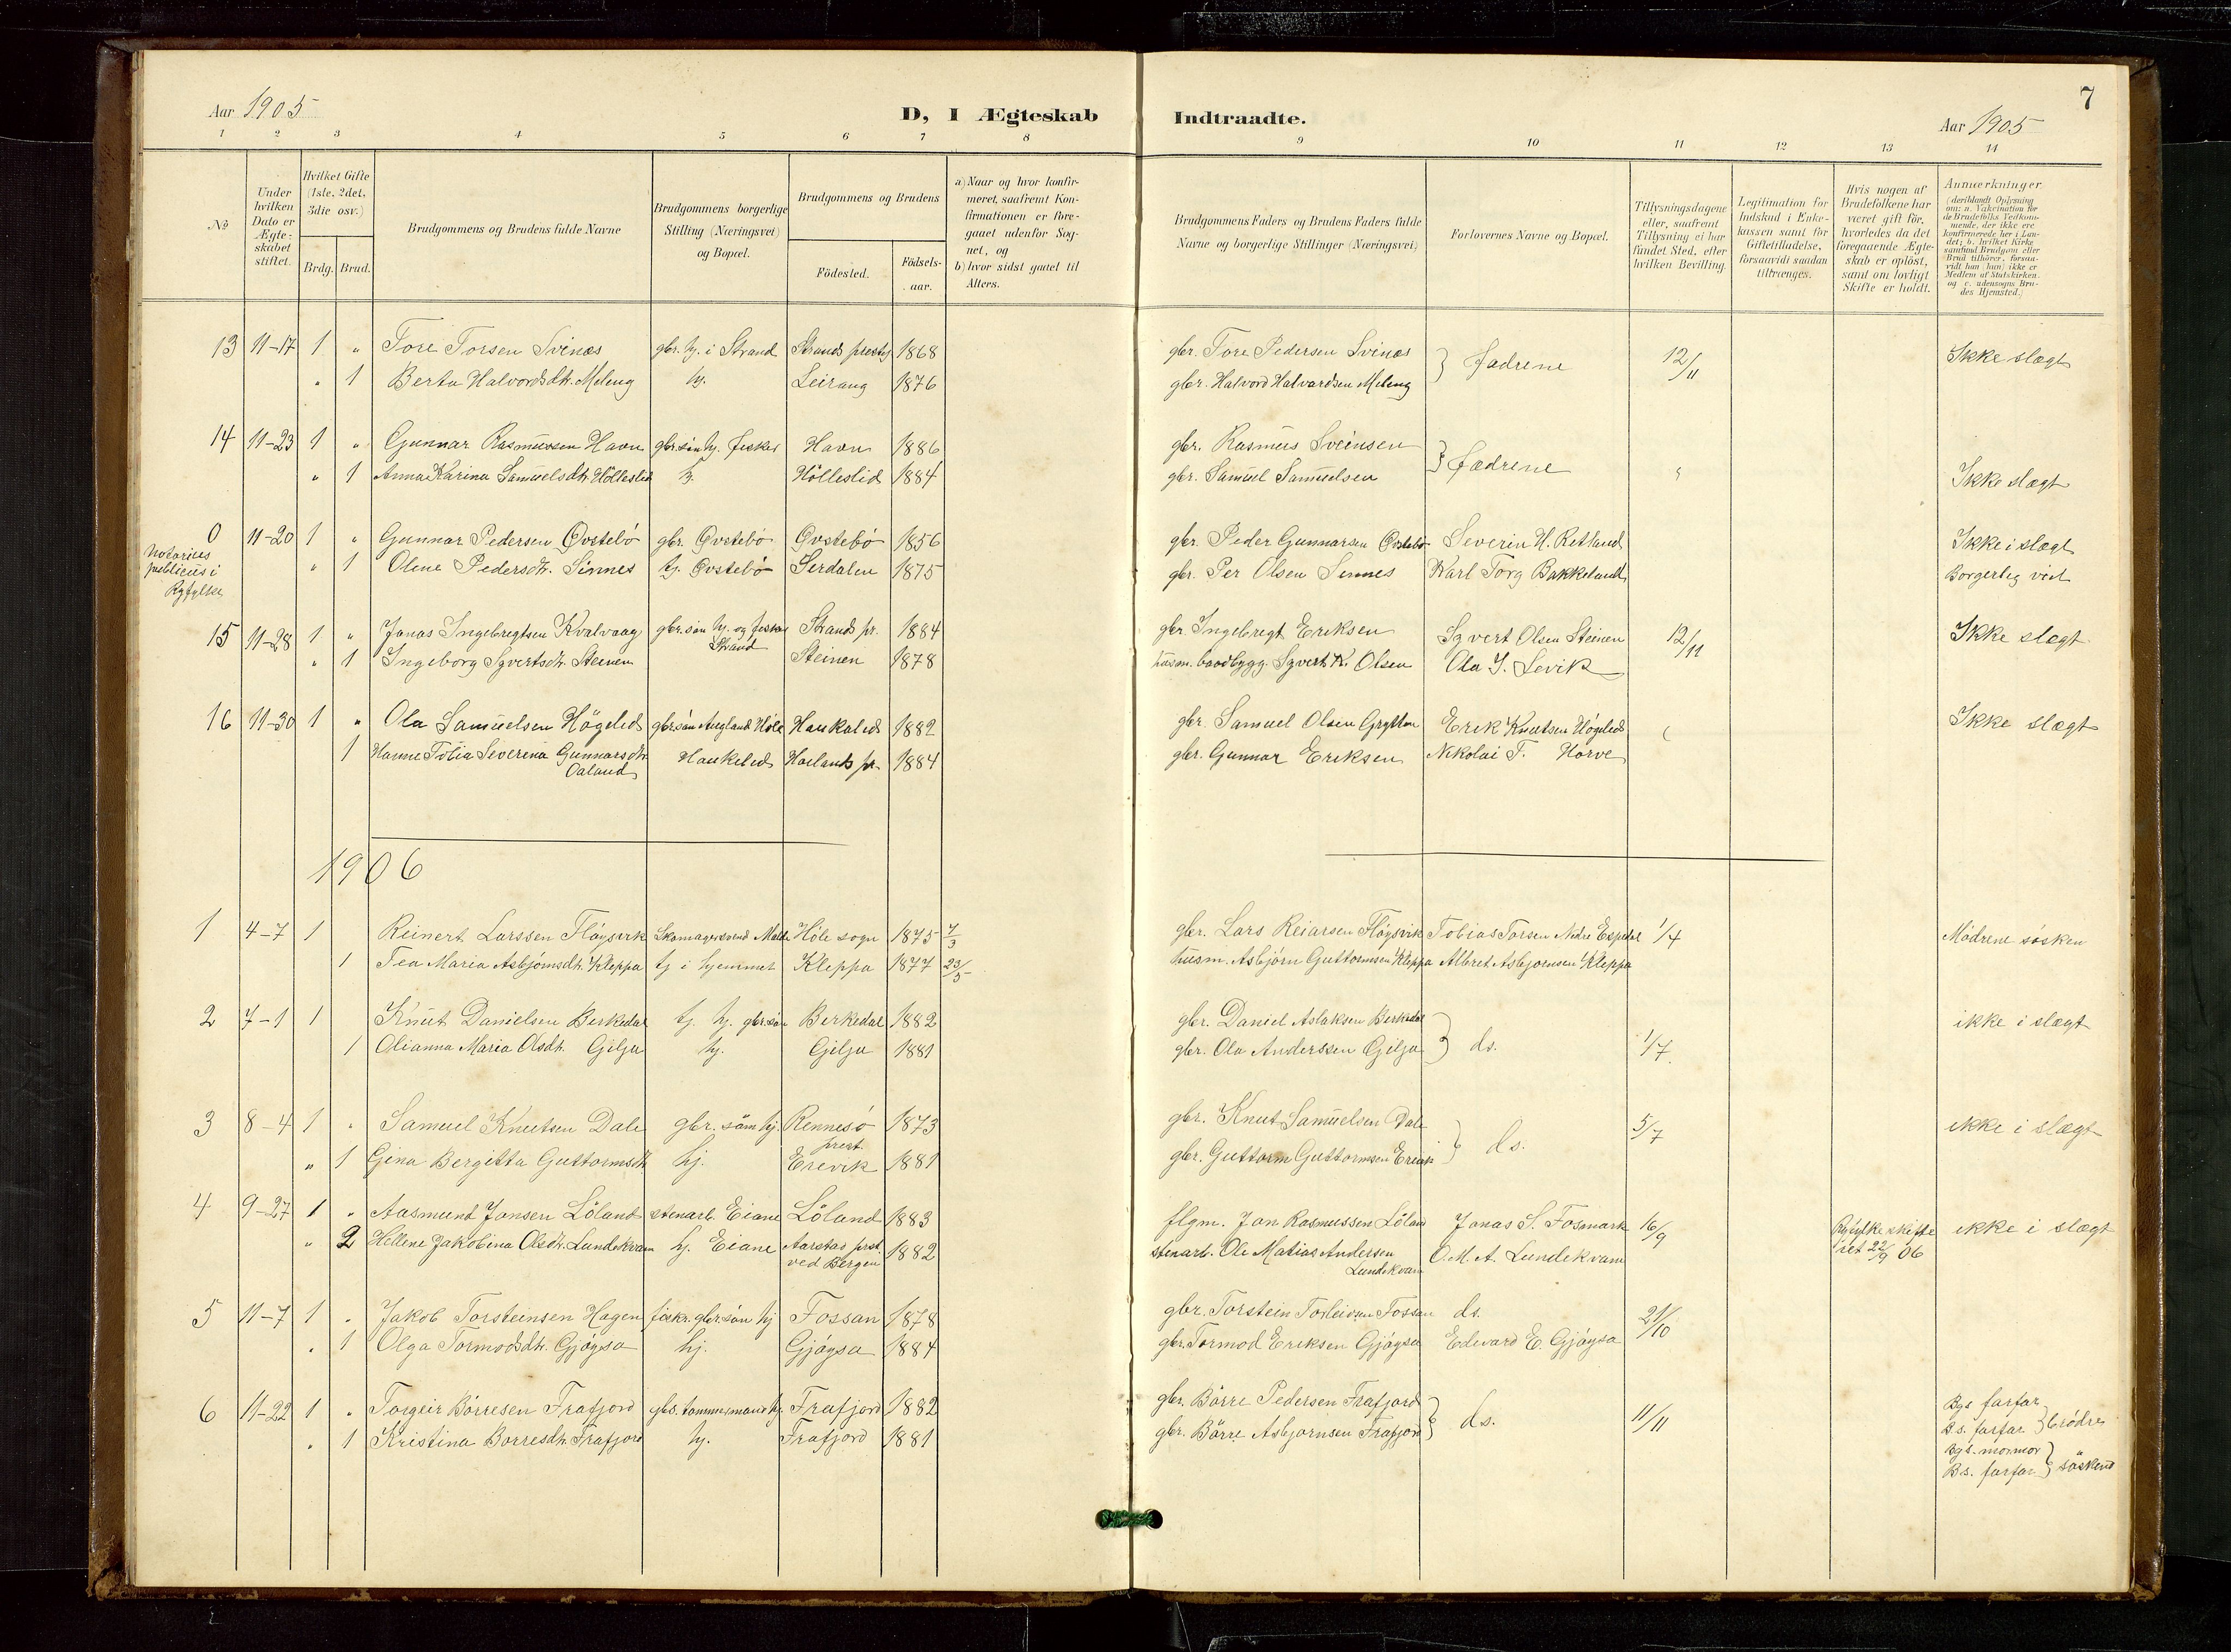 7
Aar 1905
D, I Ægteskab Indtraadte.
Aar 1905
1 2 3 4 5 6 7 8 9 10 11 12 13 14
No
Under hvilken Dato er Ægteskabet stiftet.
Hvilket Gifte (1ste, 2det, 3die osv.)
Brdg. Brud.
Brudgommens og Brudens fulde Navne
Brudgommens borgerlige Stilling (Næringsvei) og Bopæl.
Brudgommens og Brudens
Födested.
Födsels-aar.
a) Naar og hvor konfir-
meret, saafremt Kon-
firmationen er fore-
gaaet udenfor Sog-
net, og
b) hvor sidst gaaet til
Alters.
Brudgommens Faders og Brudens Faders fulde
Navne og borgerlige Stillinger (Næringsvei)
Forlovernes Navne og Bopæl.
Tillysningsdagene
eller, saafremt
Tillysning ei har
fundet Sted, efter
hvilken Bevilling.
Legitimation for
Indskud i Enke-
kassen samt for
Giftetilladelse,
forsaavidt saadan
tiltrænges.
Hvis nogen af
Brudefolkene har
været gift för,
hvorledes da det
foregaaende Ægte-
skab er oplöst,
samt om lovligt
Skifte er holdt.
Anmærkninger
(deriblandt Oplysning
om: a. Vakcination for
de Brudefolks Vedkom-
mende, der ikke ere
konfirmerede her i Lan-
det; b. hvilket Kirke
samfund Brudgom eller
Brud tilhörer, forsaa-
vidt han (hun) ikke er
Medlem af Statskirken.
og c. udensogns Bru-
des Hjemsted.)
13 11-17 1 " Tore Torsen Svines gbr. hj. i Strand Strands prestgj 1868 gbr. Tore Pedersen Svines } fædrene 12/11 Ikke slægt
" 1 Berta Halvordsdtr. Meleng hj. Leirang 1876 gbr. Halvord Halvardsen Meleng
14 11-23 1 " Gunnar Rasmussen Havn gbr.søn hj. fisker Havn 1886 gbr. Rasmus Sveinsen } fædrene "
" 1 Anna Karina Samuelsdtr. Hölleslid hj. Hölleslid 1884 gbr. Samuel Samuelsen Ikke slægt
0 11-20 1 " Gunnar Pedersen Øvstebö gbr. Øvstebö Øvstebö 1856 gbr. Peder Gunnarsen Øvstebö Severin H. Retland Ikke i slægt
Notarius publicus i Ryfylke " 1 Olene Pedersdtr. Sinnes tj. Øvstebö Serdalen 1875 gbr. Per Olsen Sinnes Karl Torg Bakkelund Borgerlig viet
15 11-28 1 " Jonas Ingebregtsen Kvalvaag gbr.søn hj. og fisker Strand Strands pr. 1884 gbr. Ingebregt Eriksen Sgvert Olsen Steinen 12/11 Ikke slægt
" 1 Ingeborg Sgvertsdtr. Steinen Steinen 1878 husm. baadbygg. Sgvert K. Olsen Ola J. Levik
16 11-30 1 " Ola Samuelsen Högelid gbr.søn Augland Höle Haukalid 1882 gbr. Samuel Olsen Gryttm Erik Knutsen Högelid " Ikke slægt
1 Hanne Tobia Severina Gunnarsdtr. Oaland Haukelid Hœlands pr. 1884 gbr. Gunnar Eriksen Nikolai T. Horve
1906
1 4-7 1 Reinert Larssen Flöysvik Skomagersvend Malde Höle sogn 1875 7/3 gbr. Lars Reiarsen Flöysvik Tobias Torsen Nedre Espedal 1/4 Mödrene söskend
1 Tea Maria Asbjörnsdtr. Kleppa tj i hjemmet Kleppa 1877 23/5 husm. Asbjörn Guttormsen Kleppa Albret Asbjornsen Kleppa
2 7-1 1 Knut Danielsen Birkedal tj. hj. gbr.søn Berkedal 1882 gbr. Daniel Aslaksen Birkedal } ds. 1/7 ikke i slægt
1 Olianna Maria Olsdtr. Gilja hj. Gilja 1881 gbr. Ola Anderssen Gilja
3 8-4 1 " Samuel Knutsen Dale gbr. søn hj. Rennesö prest. 1873 gbr. Knut Samuelsen Dale } ds. 5/7 ikke i slægt
" 1 Gina Bergitta Guttormsdtr hj. Erevik 1881 gbr. Guttorm Guttormsen Erevik
4 9-27 1 " Aasmund Jonsen Löland stenarb. Eiane Löland 1883 flgm. Jon Rasmussen Löland Jonas S. Fosmark 16/9 Ryfylke skifteret 22/9 06 ikke i slægt
" 2 Hellene Jakobina Olsdtr. Lundekvam hj. Eiane Aarstad prst. ved Bergen 1882 stenarb. Ole Matias Andersen Lundekvam O. M. A. Lundekvam
5 11-7 1 " Jakob Torsteinsen Hagen fiskr. gbr.søn hj Fossan 1878 gbr. Torstein Torleivsen Fossan ds. 21/10
" 1 Olga Tormodsdtr. Gjöysa hj. Gjöysa 1884 gbr. Tormod Eriksen Gjöysa Edvard E. Gjöysa
6 11-22 1 " Torgeir Börresen Frafjord gbs. tømmermand hj. Frafjord 1882 gbr. Börre Pedersen Frafjord } ds. 11/11 Bgs farfar
" 1 Kristina Borresdtr. Frafjord hj. Frafjord 1881 gbr. Börre Asbjornsen Frafjord Bs. farfar } brödre
Bgs. mormor
Bs. farfar } söskend